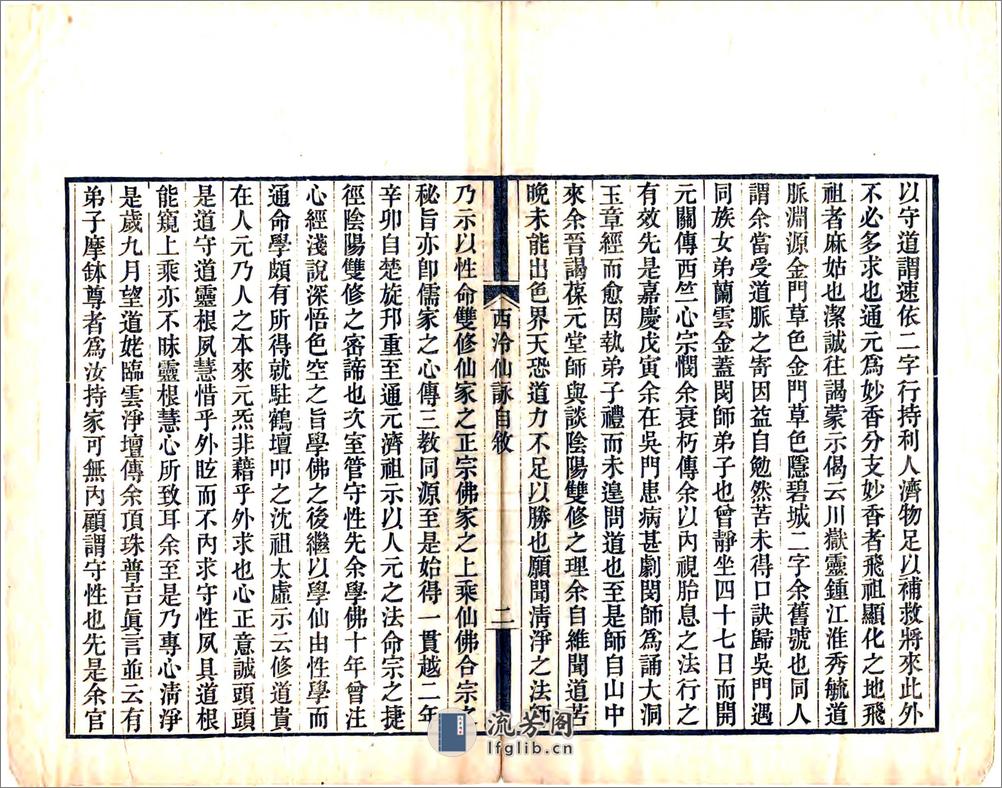 以守道謂速依二字行持利人濟物足以補救將來此外
不必多求也通元爲妙香分支妙香者飛祖顯化之地飛
祖者麻姑也潔誠往謁蒙示偈云川嶽靈鍾江淮秀毓道
脈淵源金門草色金門草色隱碧城二字余舊號也同人
謂余當受道脈之寄因益自勉然苦未得口訣歸吳門遇
同族女弟蘭雲金蓋閔師弟子也曾靜坐四十七日而開
元關傳西竺心宗憫余衰朽傳余以內視胎息之法行之
有效先是嘉慶戊寅余在吳門患病甚劇閔師爲誦大洞
玉章經而愈因執弟子禮而未遑問道也至是師自山中
來余晉謁葆元堂師與談陰陽雙修之理余自維聞道苦
晚未能出色界天恐道力不足以勝也願聞淸淨之法師
西泠仙詠自敘
二
乃示以性命雙修仙家之正宗佛家之上乘仙佛合宗之
秘旨亦卽儒家之心傳三教同源至是始得一貫越二年
辛卯自楚旋邦重至通元濟祖示以人元之法命宗之捷
徑陰陽雙修之密諦也次室管守性先余學佛十年曾注
心經淺說深悟色空之旨學佛之後繼以學仙由性學而
通命學頗有所得就駐鶴壇叩之沈祖太虛示云修道貴
在人元乃人之本來元炁非藉乎外求也心正意誠頭頭
是道守道靈根夙慧惜乎外眩而不內求守性夙具道根
能窺上乘亦不昧靈根慧心所致耳余至是乃專心淸淨
是歲九月望道姥臨雲淨壇傳余頂珠普吉眞言並云有
弟子摩鉢尊者爲汝持家可無內顧謂守性也先是余官
流芳阁
lfglib.cn